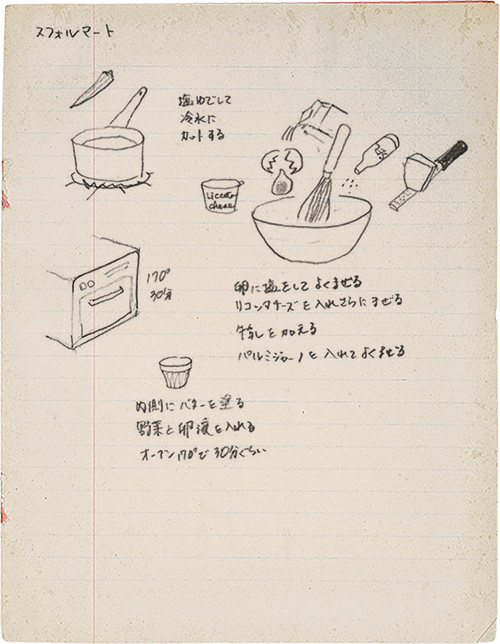 スフォルマート
塩ゆでして
冷水に
カットする
Licotta
cheese
170°
30分
卵に塩をしてよくまぜる
リコッタチーズを入れさらにまぜる
牛乳を加える
パルミジャーノを入れてよくまぜる
内側にバターを塗る
野菜と卵液を入れる
オーブン170°で30分ぐらい